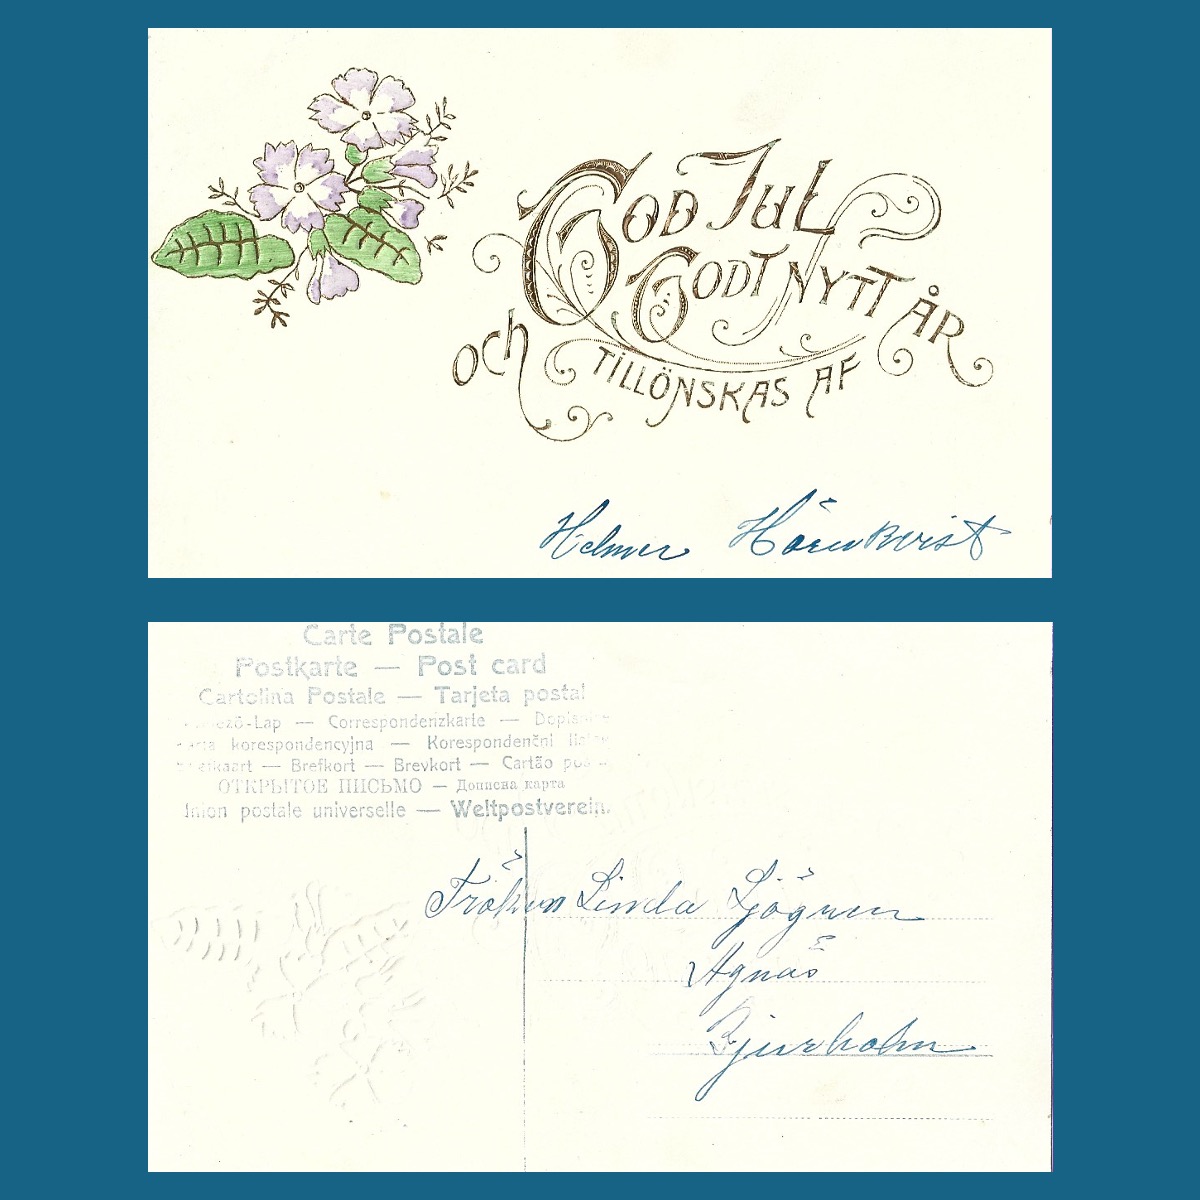 GOD JUL
och GODT NYTT ÅR
TILLÖNSKAS AF
Helmer Hörnkvist
Carte Postale
Postkarte — Post card
Cartolina Postale — Tarjeta postal
— Correspondenzkarte —
korespondencyjna — Korespondenční
— Brefkort — Brevkort — Cartão
ОТКРЫТОЕ ПИСЬМО — Дописна карта
Union postale universelle — Weltpostverein.
Fröken Linda Sjögren
Agnäs
Bjurholm